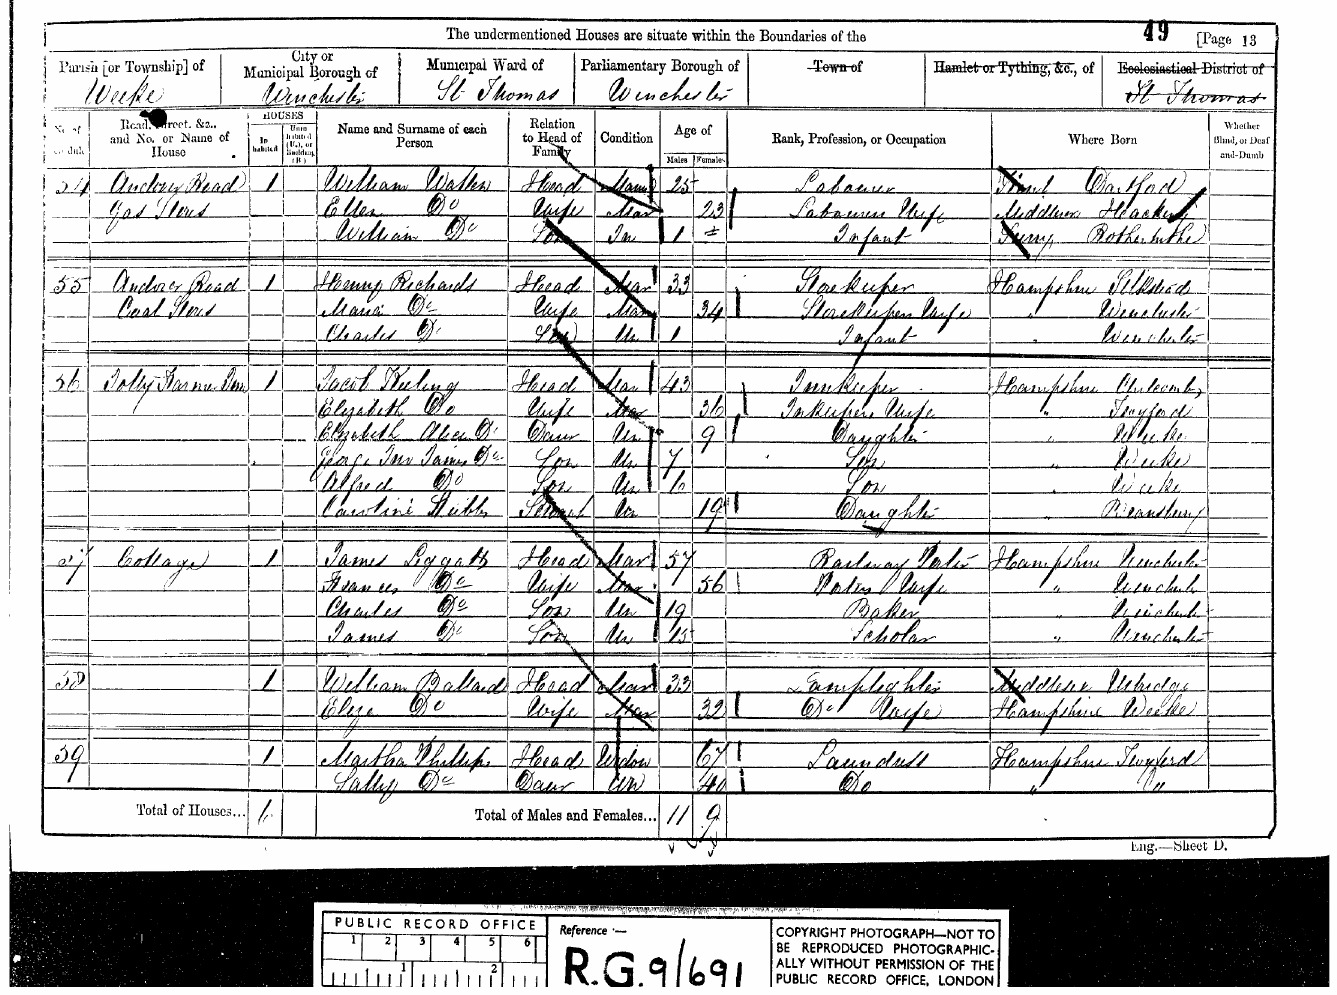 The undermentioned Houses are situate within the Boundaries of the
49 [Page 13
Parish [or Township] of
City or Municipal Borough of
Municipal Ward of
Parliamentary Borough of
Town of
Hamlet or Tything, &c., of
Ecclesiastical District of
Weeke Winchester St Thomas Winchester St Thomas
HOUSES
Road, Street, &c., and No. or Name of House
In habited
Name and Surname of each Person
Relation to Head of Family
Condition
Age of
Males Females
Rank, Profession, or Occupation
Where Born
Whether Blind, or Deaf-and-Dumb
54 Andover Road 1 William Head Mar 25 Labourer Kent Dartford
Gas Stores Ellen Do Wife Mar 23 Labourers Wife Middlesex Hackney
William Do Son Un 1 Infant Surry Rotherhithe
55 Andover Road 1 Henry Richards Head Mar 33 Storekeeper Hampshire Silkstead
Coal Stores Maria Do Wife Mar 34 Storekeepers Wife " Winchester
Charles Do Son Un 1 Infant " Winchester
56 Jolly Farmer Inn 1 Jacob Head Mar 43 Innkeeper Hampshire Chilcomb
Elizabeth Do Wife Mar 36 Inkeepers Wife " Twyford
Elizabeth Alice Do Daur Un 9 Daughter " Weeke
George Do Son Un 7 Son " Weeke
Alfred Do Son Un 6 Son " Weeke
Caroline Stubbs Servant Un 19 Daughter "
57 Cottage 1 James Liggatt Head Mar 57 Railway Porter Hampshire Winchester
Frances Do Wife Mar 56 Porters Wife " Winchester
Charles Do Son Un 19 Baker " Winchester
James Do Son Un 15 Scholar " Winchester
58 1 William Ballard Head Mar 33 Lamplighter Middlesex Uxbridge
Eliza Do Wife Mar 32 Do Wife Hampshire Weeke
59 1 Martha Phillips Head Widow 67 Laundress Hampshire Twyford
Sally Do Daur Un 40 Do " Do
Total of Houses... 6 Total of Males and Females... 11 9
Eng.—Sheet D.
PUBLIC RECORD OFFICE
1 2 3 4 5 6
1 2
Reference :—
R.G. 9/691
COPYRIGHT PHOTOGRAPH—NOT TO
BE REPRODUCED PHOTOGRAPHIC-
ALLY WITHOUT PERMISSION OF THE
PUBLIC RECORD OFFICE, LONDON